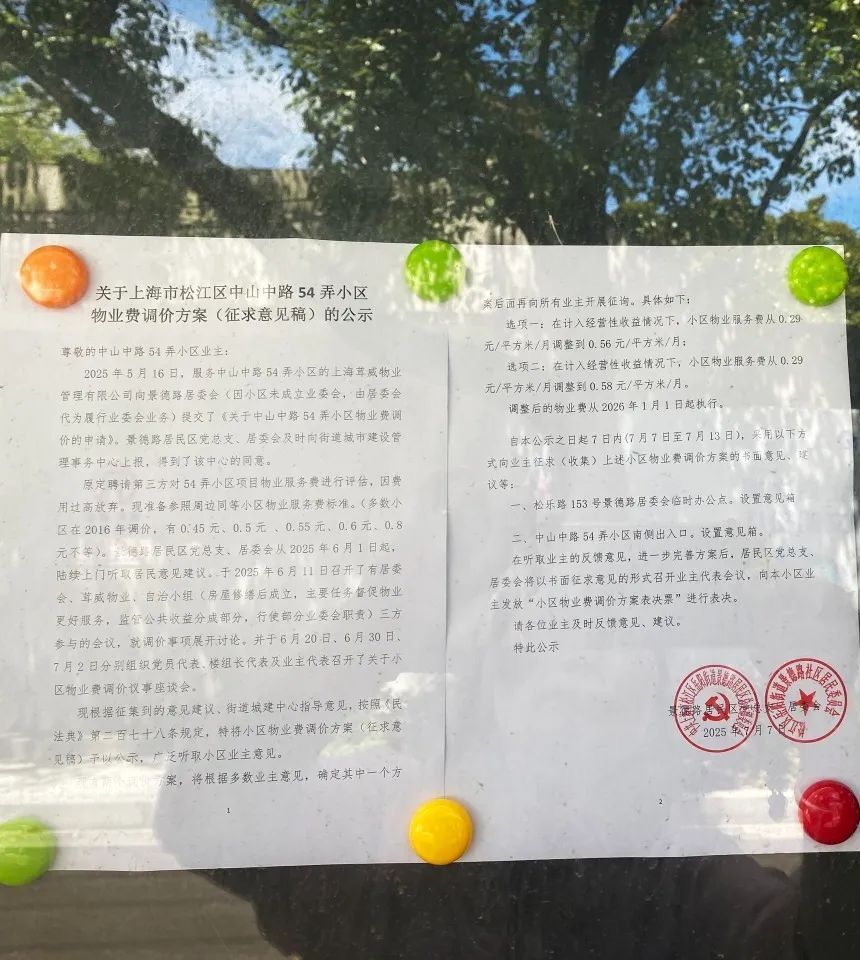 关于上海市松江区中山中路 54 弄小区
物业费调价方案（征求意见稿）的公示
尊敬的中山中路 54 弄小区业主：
2025 年 5 月 16 日，服务中山中路 54 弄小区的上海茸威物业
管理有限公司向景德路居委会（因小区未成立业委会，由居委会
代为履行业委会业务）提交了《关于中山中路 54 弄小区物业费调
价的申请》。景德路居民区党总支、居委会及时向街道城市建设管
理事务中心上报，得到了该中心的同意。
原定聘请第三方对 54 弄小区项目物业服务费进行评估，因费
用过高放弃。现准备参照周边同等小区物业服务费标准。（多数小
区在 2016 年调价，有 0.45 元、0.5 元 、0.55 元、0.6 元、0.8
元不等）。景德路居民区党总支、居委会从 2025 年 6 月 1 日起，
陆续上门听取居民意见建议。于 2025 年 6 月 11 日召开了有居委
会、茸威物业、自治小组（房屋修缮后成立，主要任务督促物业
更好服务，监管公共收益分成部分，行使部分业委会职责）三方
参与的会议，就调价事项展开讨论。并于 6 月 20 日、6 月 30 日、
7 月 2 日分别组织党员代表、楼组长代表及业主代表召开了关于小
区物业费调价议事座谈会。
现根据征集到的意见建议、街道城建中心指导意见，按照《民
法典》第二百七十八条规定，特将小区物业费调价方案（征求意
见稿）予以公示，广泛听取小区业主意见。
方案，将根据多数业主意见，确定其中一个方
1
案后面再向所有业主开展征询。具体如下：
选项一：在计入经营性收益情况下，小区物业服务费从 0.29
元/平方米/月调整到 0.56 元/平方米/月；
选项二：在计入经营性收益情况下，小区物业服务费从 0.29
元/平方米/月调整到 0.58 元/平方米/月。
调整后的物业费从 2026 年 1 月 1 日起执行。
自本公示之日起 7 日内(7 月 7 日至 7 月 13 日)，采用以下方
式向业主征求（收集）上述小区物业费调价方案的书面意见、建
议等：
一、松乐路 153 号景德路居委会临时办公点。设置意见箱
二、中山中路 54 弄小区南侧出入口。设置意见箱。
在听取业主的反馈意见，进一步完善方案后，居民区党总支、
居委会将以书面征求意见的形式召开业主代表会议，向本小区业
主发放“小区物业费调价方案表决票”进行表决。
请各位业主及时反馈意见、建议。
特此公示
景德路居民区
2025 年 7 月 7 日
2